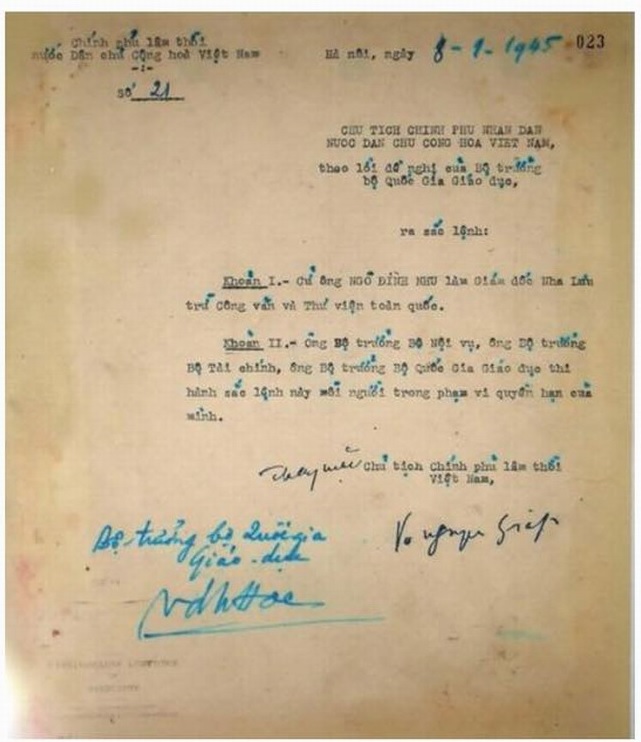 Chính phủ lâm thời
nước Dân chủ Cộng hoà Việt Nam
-:-
Số 21
Hà nội, ngày 8-9-1945
023
CHU TICH CHINH PHU NHAN DAN
NUOC DAN CHU CONG HOA VIET NAM,
theo lời đề nghị của Bộ trưởng
bộ Quốc Gia Giáo dục,
ra sắc lệnh:
Khoản I.- Cử ông NGÔ ĐÌNH NHU làm Giám đốc Nha Lưu
trữ Công văn và Thư viện toàn quốc.
Khoản II.- Ông Bộ trưởng Bộ Nội vụ, ông Bộ trưởng
Bộ Tài chính, ông Bộ trưởng Bộ Quốc Gia Giáo dục thi
hành sắc lệnh này mỗi người trong phạm vi quyền hạn của
mình.
Thay mặt Chủ tịch Chính phủ lâm thời
Việt Nam,
Bộ trưởng bộ Quốc gia
Giáo-dục
Vo nguyen Giáp
VdhHoe